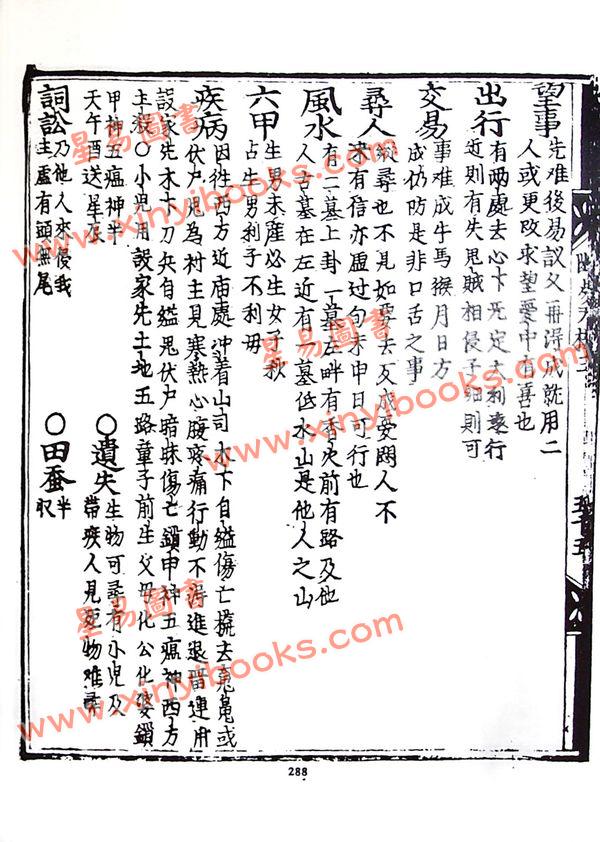 望事先难後易設父毋得成就用二
人或更改求望憂中有喜也
出行有两處去心下死定大利遠行
近則有失鬼賊相侵子細則可
交易事难成牛馬猴月日方
成仍防是非口舌之事
尋人須尋也不見如要去反成憂悶人不
來有信亦虛过旬末申日可行也
風水有二墓上卦一墓左畔有香火前有路及他
人古墓在左近有一墓低水山是他人之山
六甲生男未産必生女子秋
占生男利子不利毋
疾病因往西方近庙處冲着山司木下自縊傷亡
去冤鬼或
伏尸鬼為村主見寒熱心腹疼痛行動不得進退
連用
設家先木下刀兵自縊鬼伏尸暗昧傷亡鎖甲神五瘟神西方
主殺〇小児用設家先土地五路童子前生父母化公化婆鎖
甲神五瘟神半
天午酉送星辰
〇遺失生物可尋有小児及
帶疾人見更物难尋
詞訟乃他人來侵我
主虛有頭無尾
〇田蚕半
収
288
星易圖書
www.xinyibooks.com
星易圖書
www.xinyibooks.com
星易圖書
www.xinyibooks.com